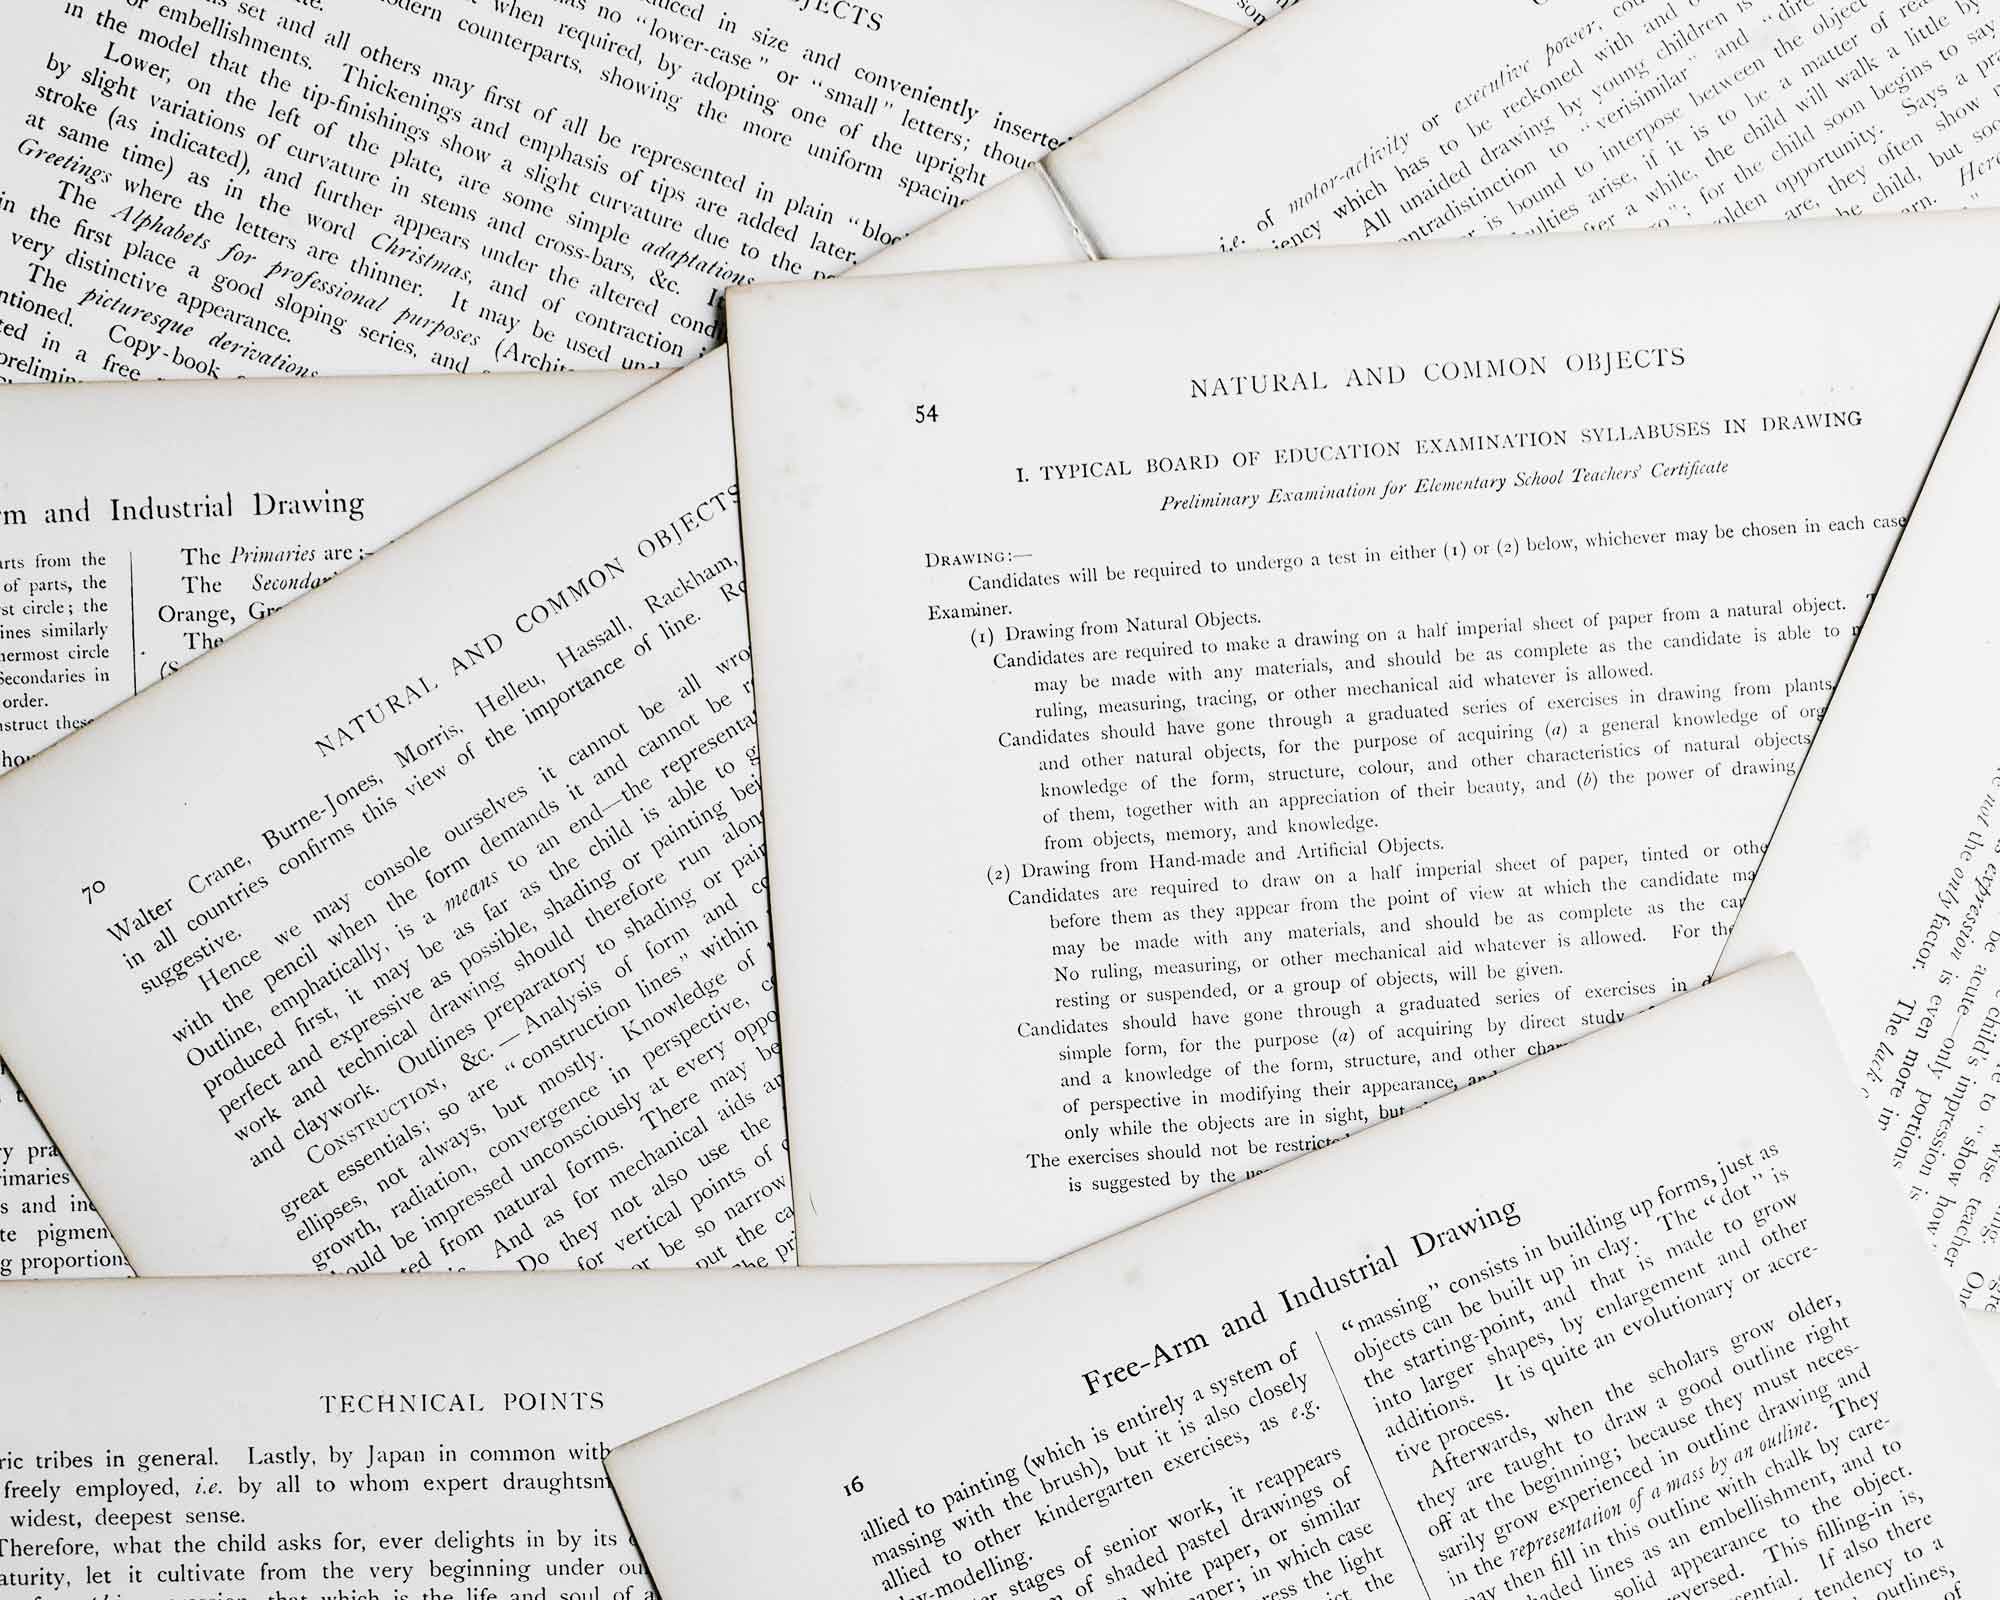 OBJECTS
in size and conveniently inserted
has no "lower-case" or "small" letters; though
when required, by adopting one of the upright
modern counterparts, showing the more uniform spacing
set and all others may first of all be represented in plain
or embellishments. Thickenings and emphasis of tips are added later.
in the model that the tip-finishings show a slight curvature due to the
Lower, on the left of the plate, are some simple adaptations
by slight variations of curvature in stems and cross-bars, &c.
stroke (as indicated), and further appears under the altered
at same time) as in the word Christmas, and of contraction
Greetings where the letters are thinner. It may be used
The Alphabets for professional purposes
in the first place a good sloping series, and
very distinctive appearance.
The picturesque derivations
Copy-book
in a free
i.e. of motor-activity or executive power,
which has to be reckoned with and
All unaided drawing by young children is
to "verisimilar" and
is bound to interpose between the object
arise, if it is to be a matter of
after a while, the child will walk a little by
for the child soon begins to say
opportunity. Says a
are, they often show
the child, but
Here
rm and Industrial Drawing
arts from the
of parts, the
circle; the
lines similarly
circle
Secondaries in
order.
these
The Primaries are:—
The
Orange,
The
NATURAL AND COMMON OBJECTS
70
Walter Crane, Burne-Jones, Morris, Helleu, Hassall, Rackham,
in all countries confirms this view of the importance of line.
suggestive.
Hence we may console ourselves it cannot be all
with the pencil when the form demands it and cannot be
Outline, emphatically, is a means to an end—the
produced first, it may be as far as the child is able to
perfect and expressive as possible, shading or painting
work and technical drawing should therefore run
and claywork. Outlines preparatory to shading or
CONSTRUCTION, &c.—Analysis of form and
great essentials; so are "construction lines" within
ellipses, not always, but mostly. Knowledge of
growth, radiation, convergence in perspective,
should be impressed unconsciously at every
from natural forms. There may be
And as for mechanical aids
Do they not also use the
for vertical points of
or be so narrow
put the
54
NATURAL AND COMMON OBJECTS
I. TYPICAL BOARD OF EDUCATION EXAMINATION SYLLABUSES IN DRAWING
Preliminary Examination for Elementary School Teachers' Certificate
DRAWING:—
Candidates will be required to undergo a test in either (1) or (2) below, whichever may be chosen in each case
Examiner.
(1) Drawing from Natural Objects.
Candidates are required to make a drawing on a half imperial sheet of paper from a natural object.
may be made with any materials, and should be as complete as the candidate is able to
ruling, measuring, tracing, or other mechanical aid whatever is allowed.
Candidates should have gone through a graduated series of exercises in drawing from plants,
and other natural objects, for the purpose of acquiring (a) a general knowledge of
knowledge of the form, structure, colour, and other characteristics of natural objects
of them, together with an appreciation of their beauty, and (b) the power of drawing
from objects, memory, and knowledge.
(2) Drawing from Hand-made and Artificial Objects.
Candidates are required to draw on a half imperial sheet of paper, tinted or
before them as they appear from the point of view at which the candidate
may be made with any materials, and should be as complete as the
No ruling, measuring, or other mechanical aid whatever is allowed. For the
resting or suspended, or a group of objects, will be given.
Candidates should have gone through a graduated series of exercises in
simple form, for the purpose (a) of acquiring by direct study
and a knowledge of the form, structure, and other
of perspective in modifying their appearance,
only while the objects are in sight, but
The exercises should not be restricted
is suggested by the
primaries
and
pigment
proportions
TECHNICAL POINTS
tribes in general. Lastly, by Japan in common with
freely employed, i.e. by all to whom expert
widest, deepest sense.
Therefore, what the child asks for, ever delights in by its
let it cultivate from the very beginning under
that which is the life and soul of
Free-Arm and Industrial Drawing
16
allied to painting (which is entirely a system of
massing with the brush), but it is also closely
allied to other kindergarten exercises, as e.g.
stages of senior work, it reappears
of shaded pastel drawings of
white paper, or similar
in which case
the light
the
"massing" consists in building up forms, just as
objects can be built up in clay. The "dot" is
the starting-point, and that is made to grow
into larger shapes, by enlargement and other
additions. It is quite an evolutionary or accre-
tive process.
Afterwards, when the scholars grow older,
they are taught to draw a good outline right
off at the beginning; because they must neces-
sarily grow experienced in outline drawing and
in the representation of a mass by an outline. They
may then fill in this outline with chalk by care-
lines as an embellishment, and to
solid appearance to the object.
This filling-in is,
If also there
tendency to a
outlines,
of
not the only factor.
expression is even more
be acute—only portions
child's impression is
to "show how"
wise teacher
The lack